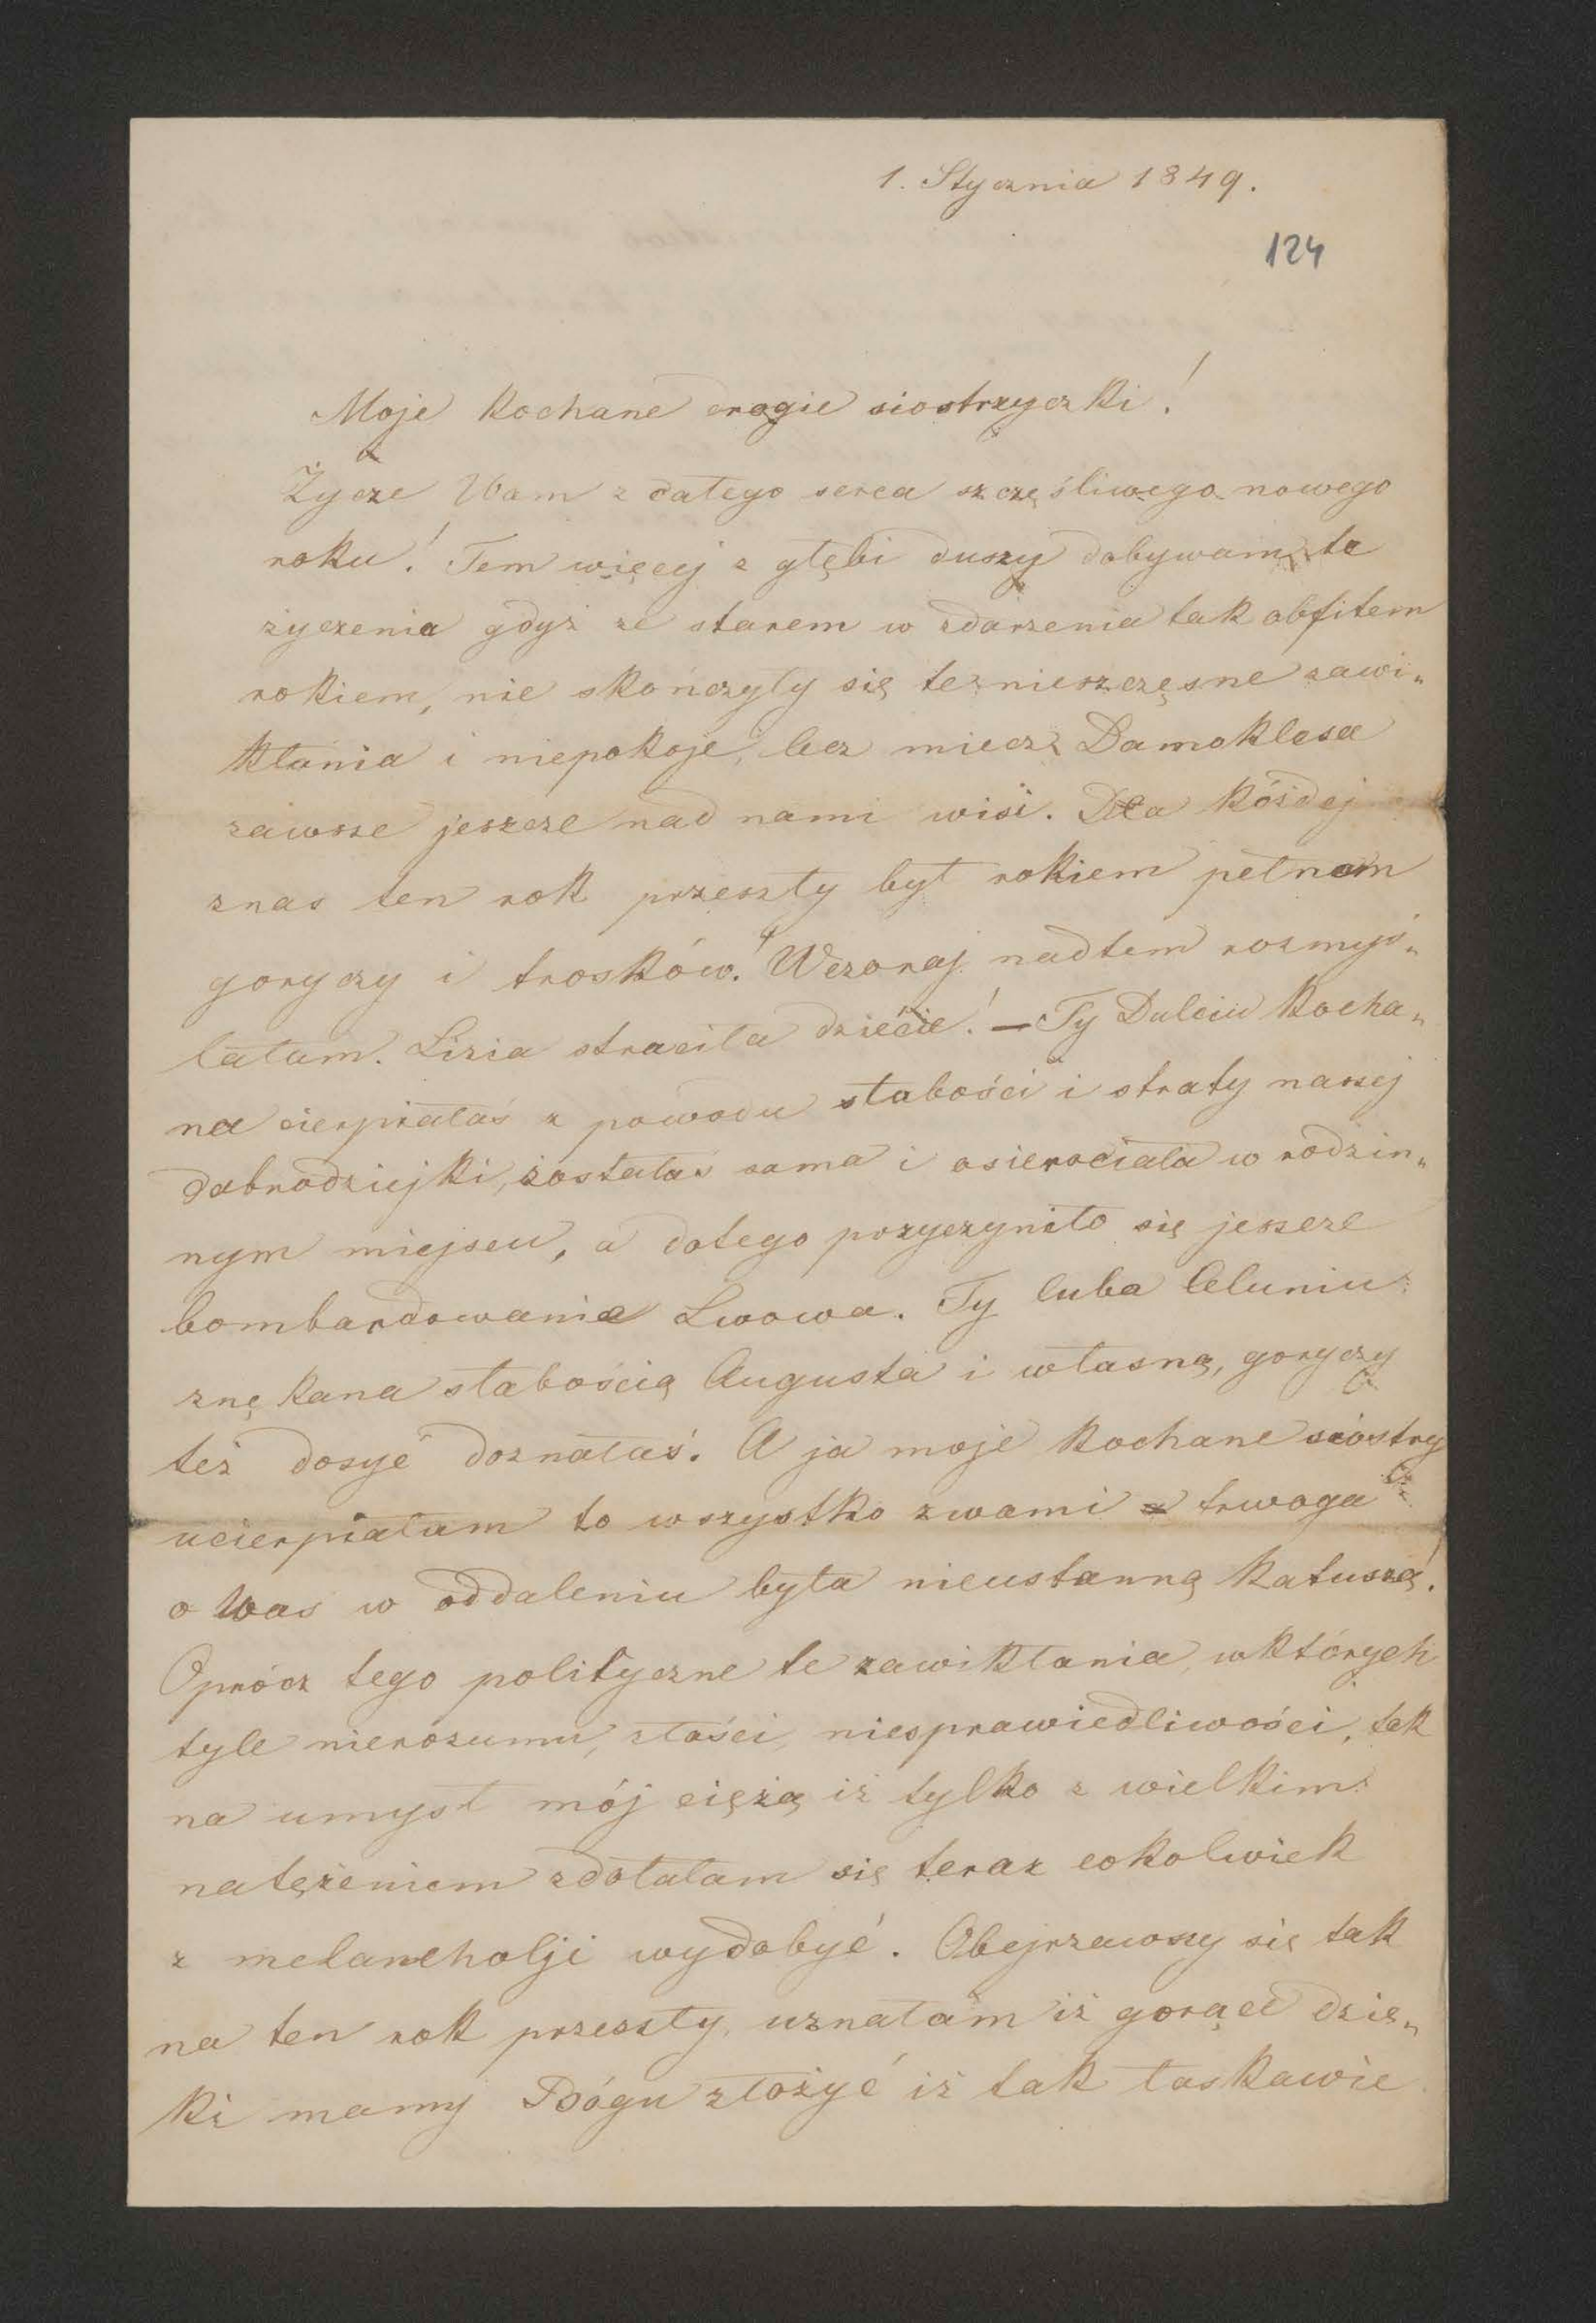 1. Stycznia 1849.
124
Moje kochane drogie siostrzyczki!
Życze Wam z całego serca szczęśliwego nowego
roku! Tem więcej z głębi duszy dobywam te
zyczenia gdyż ze starem w zdarzenia tak obfitem
rokiem, nie skończyły się te nieszczęsne zawi„
kłania i niepokoje, lecz miecz Damoklesa
zawsze jeszcze nad nami wisi. Dla kóżdej
znas ten rok przeszły był rokiem pełnem
goryczy i trosków! Wczoraj nadtem rozmyś„
lałam. Lizia straciła dziécie! — Ty Dulciu kocha„
na cierpiałaś z powodu słabości i straty naszej
dobrodziejki, zostałaś sama i osierociała w rodzin„
nym miejscu, a dotego przyczyniło się jeszcze
bombardowanie Lwowa. Ty luba Celuniu
znękana słabością Augusta i własną, goryczy
też dosyć doznałaś. A ja moje kochane siostry
ucierpiałam to wszystko zwami a trwoga
o Was w oddaleniu była nieustanną katuszą!
Oprócz tego polityczne te zawikłania, wktórych
tyle nierozumu, złości, niesprawiedliwości, tak
na umysł mój ciężą iż tylko z wielkim
natężeniem zdołałam się teraz cokolwiek
z melancholji wydobyć. Obejrzawszy się tak
na ten rok przeszły, uznałam iż gorące dzię„
ki mamy Bógu złożyć iż tak łaskawie